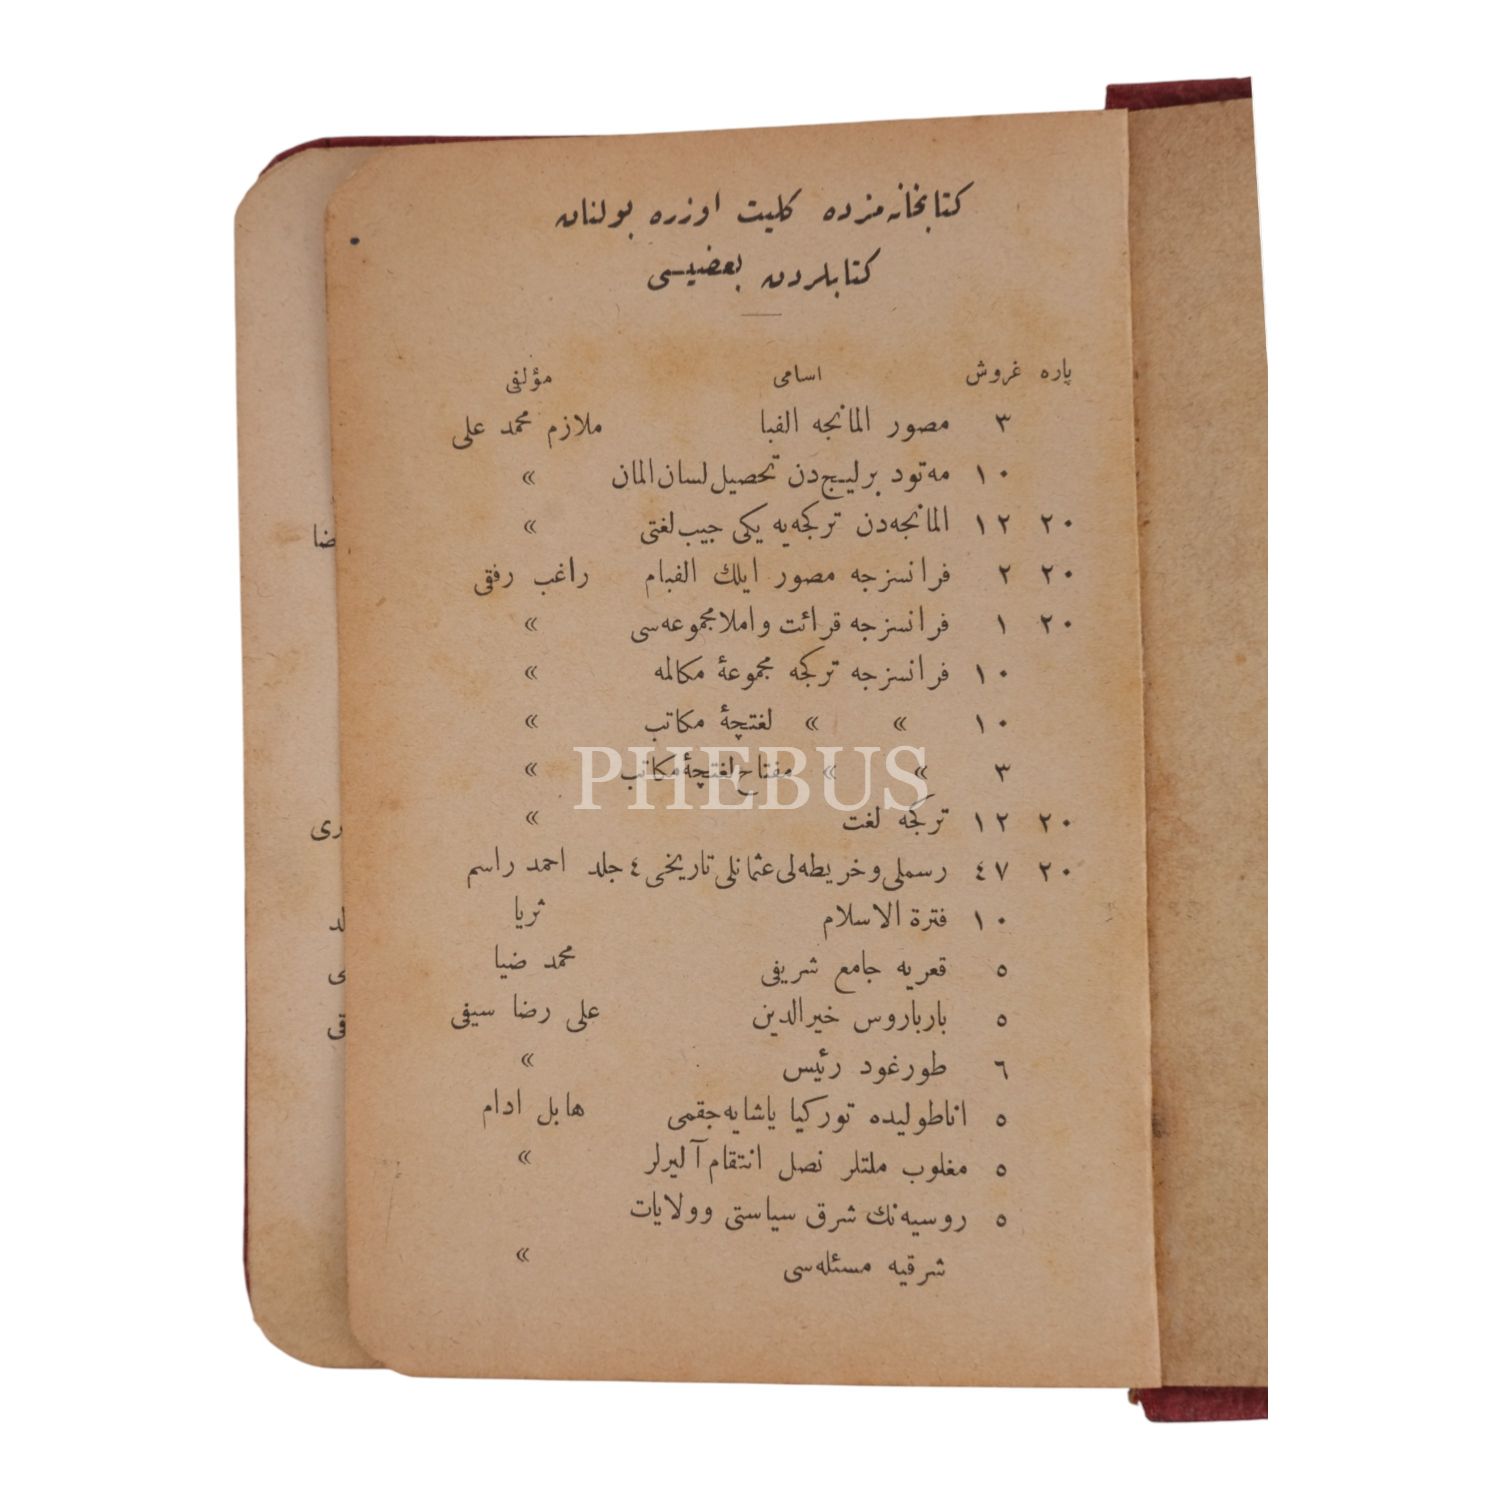 كتابخانه‌مزده كليت اوزره بولنان
كتابلردن بعضيسى
پاره غروش اسامى مؤلفى
٣ مصور المانجه الفبا ملازم محمد على
١٠ مه‌تود برليج‌دن تحصيل لسان المان »
٢٠ ١٢ المانجه‌دن تركجه‌يه يكى جيب لغتى »
٢٠ ٢ فرانسزجه مصور ايلك الفبام راغب رفقى
٢٠ ١ فرانسزجه قرائت واملا مجموعه‌سى »
١٠ فرانسزجه تركجه مجموعهٔ مكالمه »
١٠ » » لغتچهٔ مكاتب »
٣ » » مفتاح لغتچهٔ مكاتب »
PHEBUS
٢٠ ١٢ تركجه لغت »
٢٠ ٤٧ رسملى وخريطه‌لى عثمانلى تاريخى ٤ جلد احمد راسم
١٠ فترة الاسلام ثريا
٥ قعريه جامع شريفى محمد ضيا
٥ بارباروس خيرالدين على رضا سيفى
٦ طورغود رئيس »
٥ اناطوليده توركيا ياشايه‌جقمى هابل ادام
٥ مغلوب ملتلر نصل انتقام آليرلر »
٥ روسيه‌نك شرق سياستى وولايات
شرقيه مسئله‌سى »